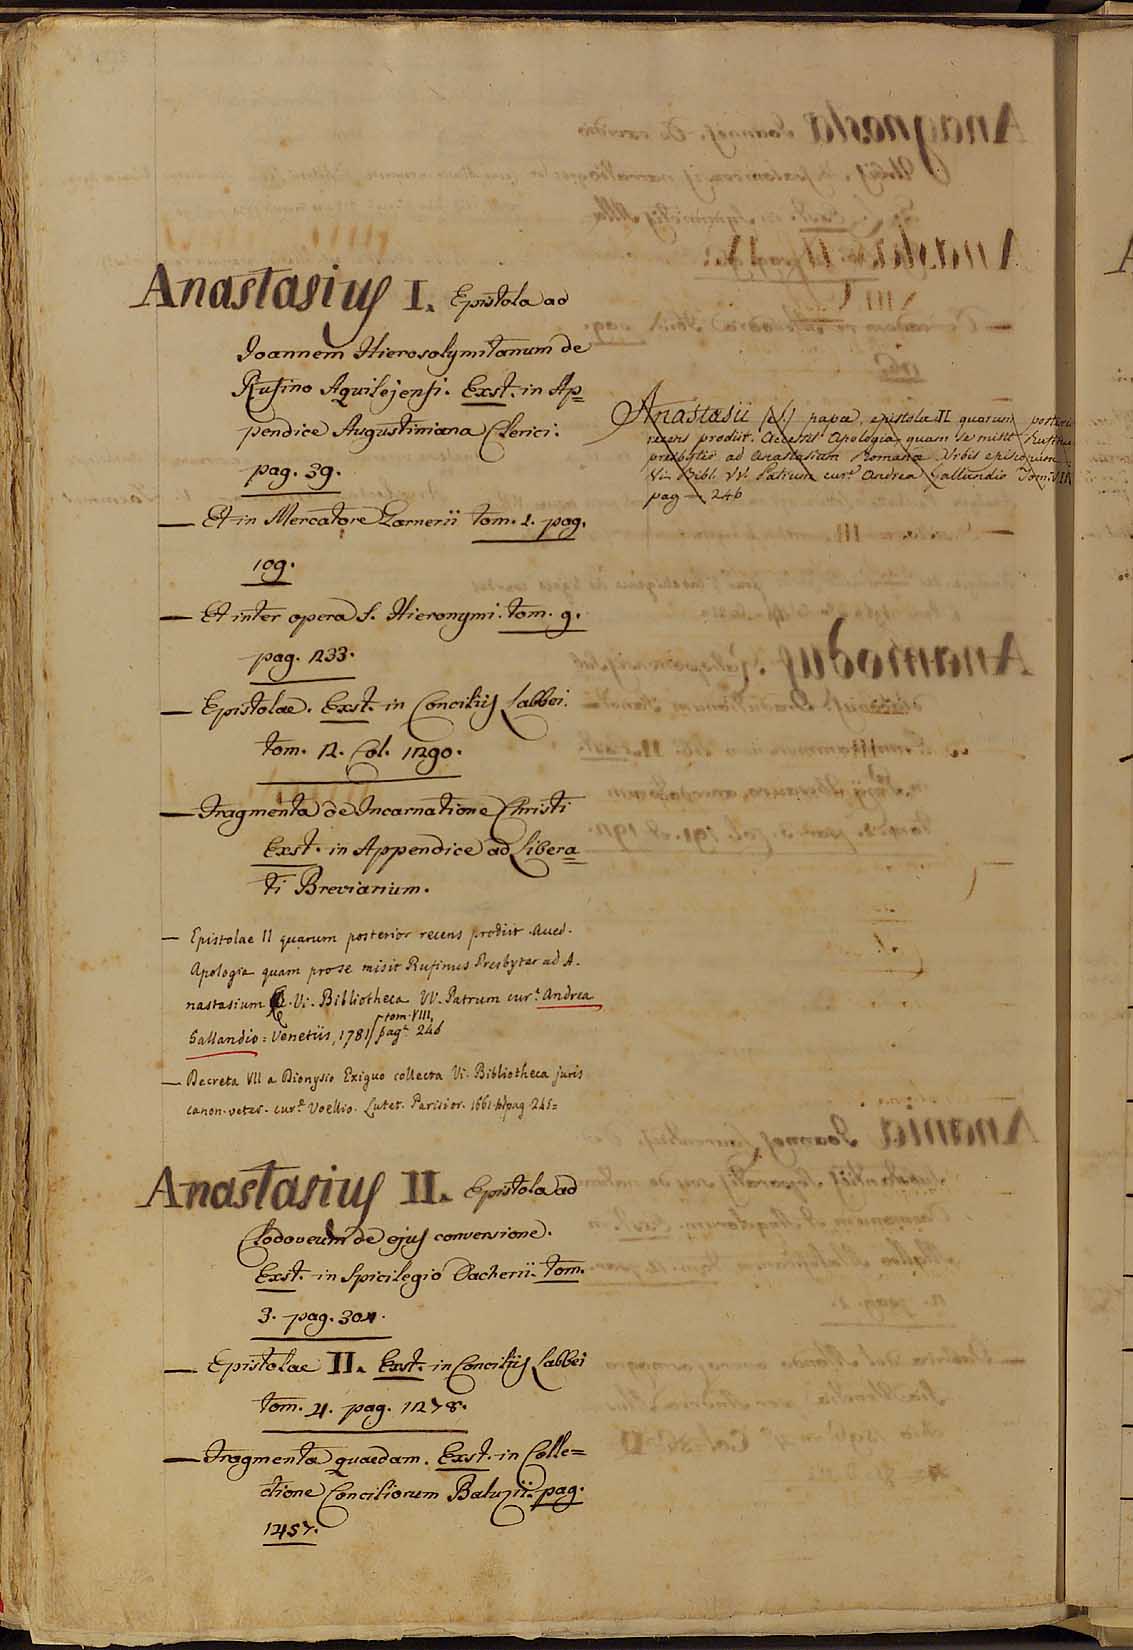 Anastasius I. Epistola ad
Joannem Hierosolymitanum de
Rufino Aquilejensi. Exst. in Ap=
pendice Augustiniana Clerici.
pag. 39.
— Et in Mercatore Garnerii tom. 1. pag.
109.
— Et inter opera S. Hieronymi. tom. 9.
pag. 233.
— Epistolae. Exst. in Conciliis Labbei.
tom. 2. Col. 1290.
— Fragmenta de Incarnatione Christi
Exst. in Appendice ad Libera=
ti Breviarium.
— Epistolae II quarum posterior recens prodiit. Acced.
Apologia quam pro se misit Rufinus Presbyter ad A.
nastasium . Vi. Bibliotheca VV. Patrum cur.ᵃ Andrea
Gallandio = Venetiis, 1781 tom. VIII. pag.ᵃ 246
— Decreta VII a Dionysio Exiguo collecta Vi. Bibliotheca juris
canon. veter. cur.ᵃ Voellio. Lutet. Parisior. 1661. pag. 245=
Anastasii (S.) papae, epistola II quarum
recens prodiit. Accessit Apologia quam se misit Rufinus
presbyter ad Anastasium Romanae Urbis episcopum.
Vi. Bibl. VV. Patrum cur.ᵃ Andrea Gallandio Tom. VIII
pag — 246
Anastasius II. Epistola ad
Clodoveum de ejus conversione.
Exst. in Spicilegio Dacherii. tom.
3. pag. 304.
— Epistolae II. Exst. in Conciliis Labbei
tom. 4. pag. 1278.
— Fragmenta quaedam. Exst. in Colle=
ctione Conciliorum Baluzii. pag.
1457.